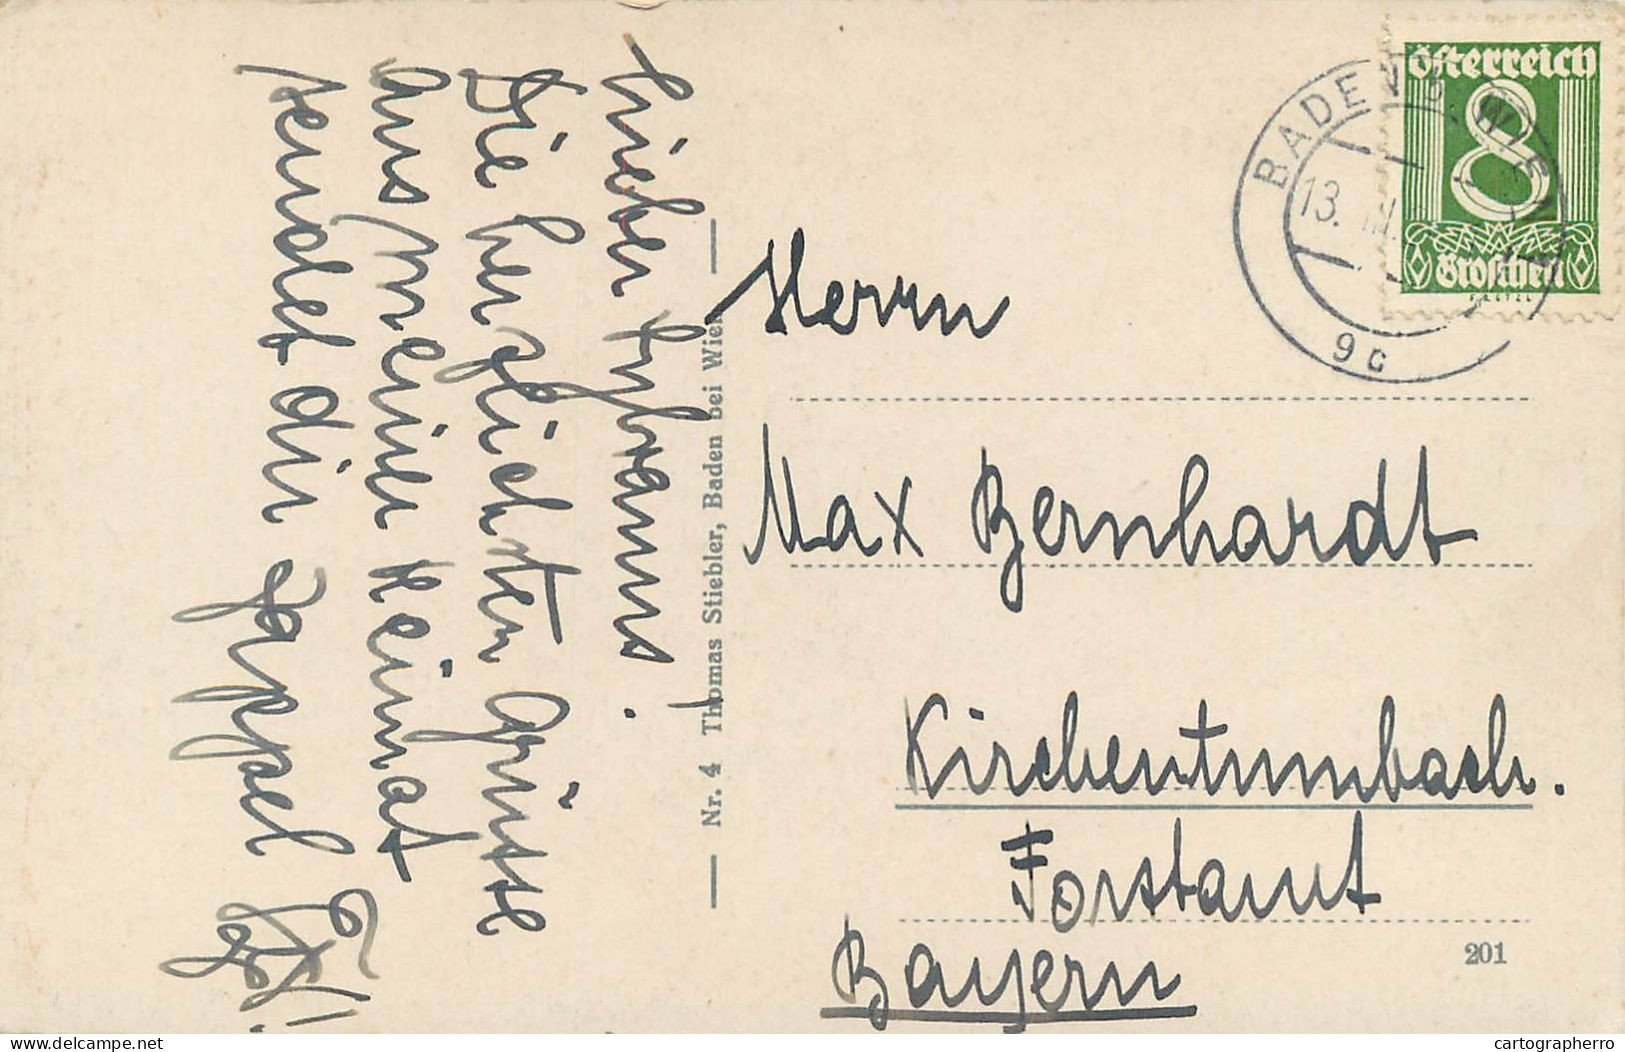 Lieber
Die herzlichsten Grüsse
aus meiner Heimat
sendet dir
Nr. 4 Thomas Stiebler, Baden bei Wien
Österreich
8
Groschen
BADEN B. WIEN
13. III.
9c
Herrn
Max Bernhardt
Kirchentumbach.
Forstamt
Bayern
201
delcampe.net
cartographerro